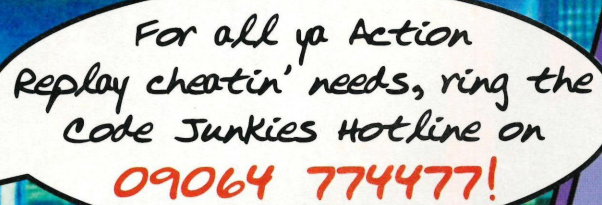 For all ya Action
Replay cheatin' needs, ring the
Code Junkies Hotline on
09064 774477!